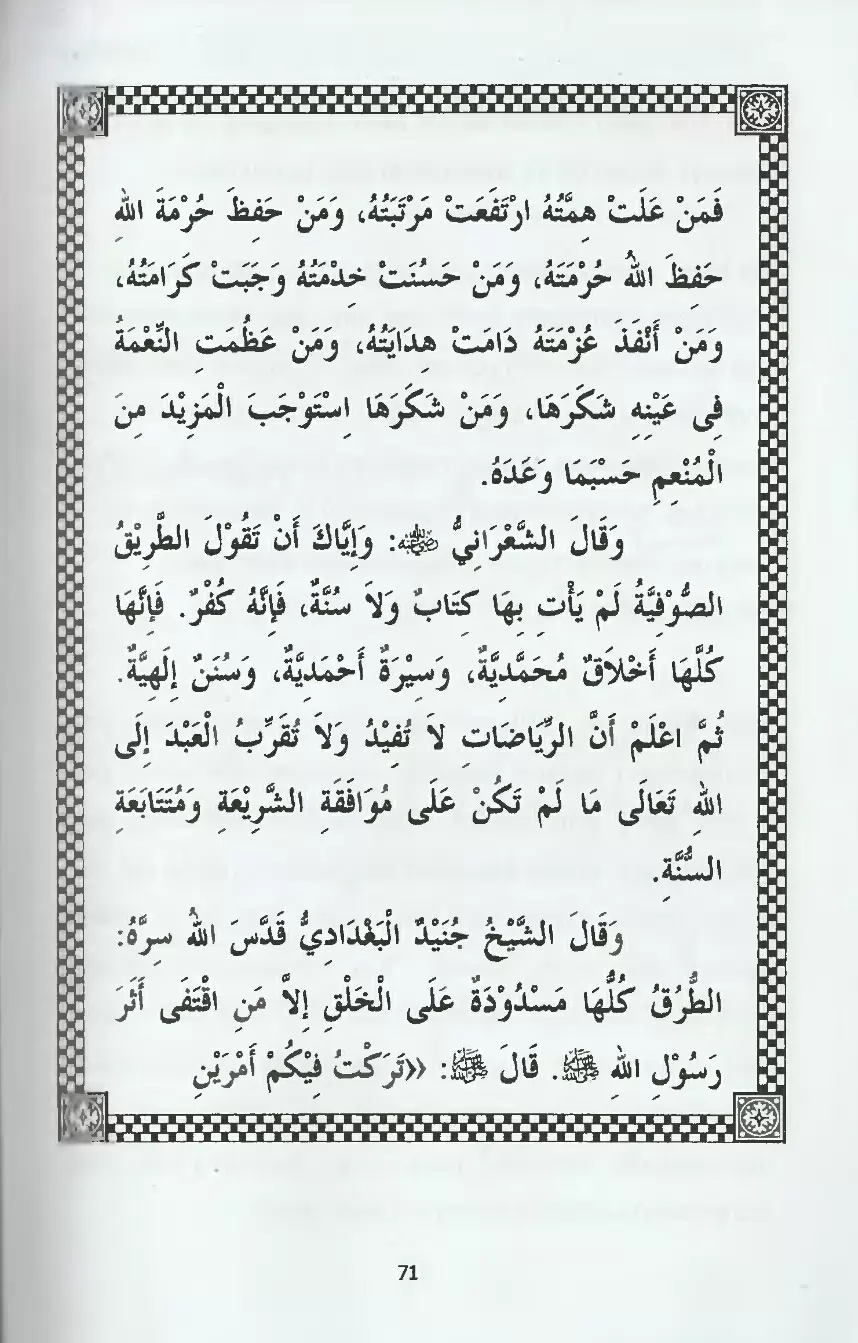 فَمَنْ عَلَتْ هِمَّتُهُ ارْتَفَعَتْ مَرْتَبَتُهُ، وَمَنْ حَفِظَ حُرْمَةَ اللهِ
حَفِظَ اللهُ حُرْمَتَهُ، وَمَنْ حَسُنَتْ خِدْمَتُهُ وَجَبَتْ كَرَامَتُهُ،
وَمَنْ أَنْفَذَ عَزْمَتَهُ دَامَتْ هِدَايَتُهُ، وَمَنْ عَظُمَتِ النِّعْمَةُ
فِى عَيْنِهِ شَكَرَهَا، وَمَنْ شَكَرَهَا اسْتَوْجَبَ الْمَزِيْدَ مِنَ
الْمُنْعِمِ حَسْبَمَا وَعَدَهُ.
وَقَالَ الشَّعْرَانِيُّ ؓ: وَإِيَّاكَ أَنْ تَقُوْلَ الطَّرِيْقُ
الصُّوْفِيَّةُ لَمْ يَأْتِ بِهَا كِتَابٌ وَلاَ سُنَّةٌ، فَإِنَّهُ كُفْرٌ. فَإِنَّهَا
كُلَّهَا أَخْلاَقٌ مُحَمَّدِيَّةٌ، وَسِيْرَةٌ أَحْمَدِيَّةٌ، وَسُنَنٌ إِلَهِيَّةٌ.
ثُمَّ اعْلَمْ أَنَّ الرِّيَاضَاتِ لاَ تُفِيْدُ وَلاَ تُقَرِّبُ الْعَبْدَ إِلَى
اللهِ تَعَالَى مَا لَمْ تَكُنْ عَلَى مُوَافَقَةِ الشَّرِيْعَةِ وَمُتَتَابَعَةِ
السُّنَّةِ.
وَقَالَ الشَّيْخُ جُنَيْدٌ الْبَغْدَادِيُّ قَدَّسَ اللهُ سِرَّهُ:
الطُّرُقُ كُلُّهَا مَسْدُوْدَةٌ عَلَى الْخَلْقِ إِلاَّ مَنِ اقْتَفَى أَثَرَ
رَسُوْلِ اللهِ ﷺ. قَالَ ﷺ: «تَرَكْتُ فِيْكُمْ أَمْرَيْنِ
71